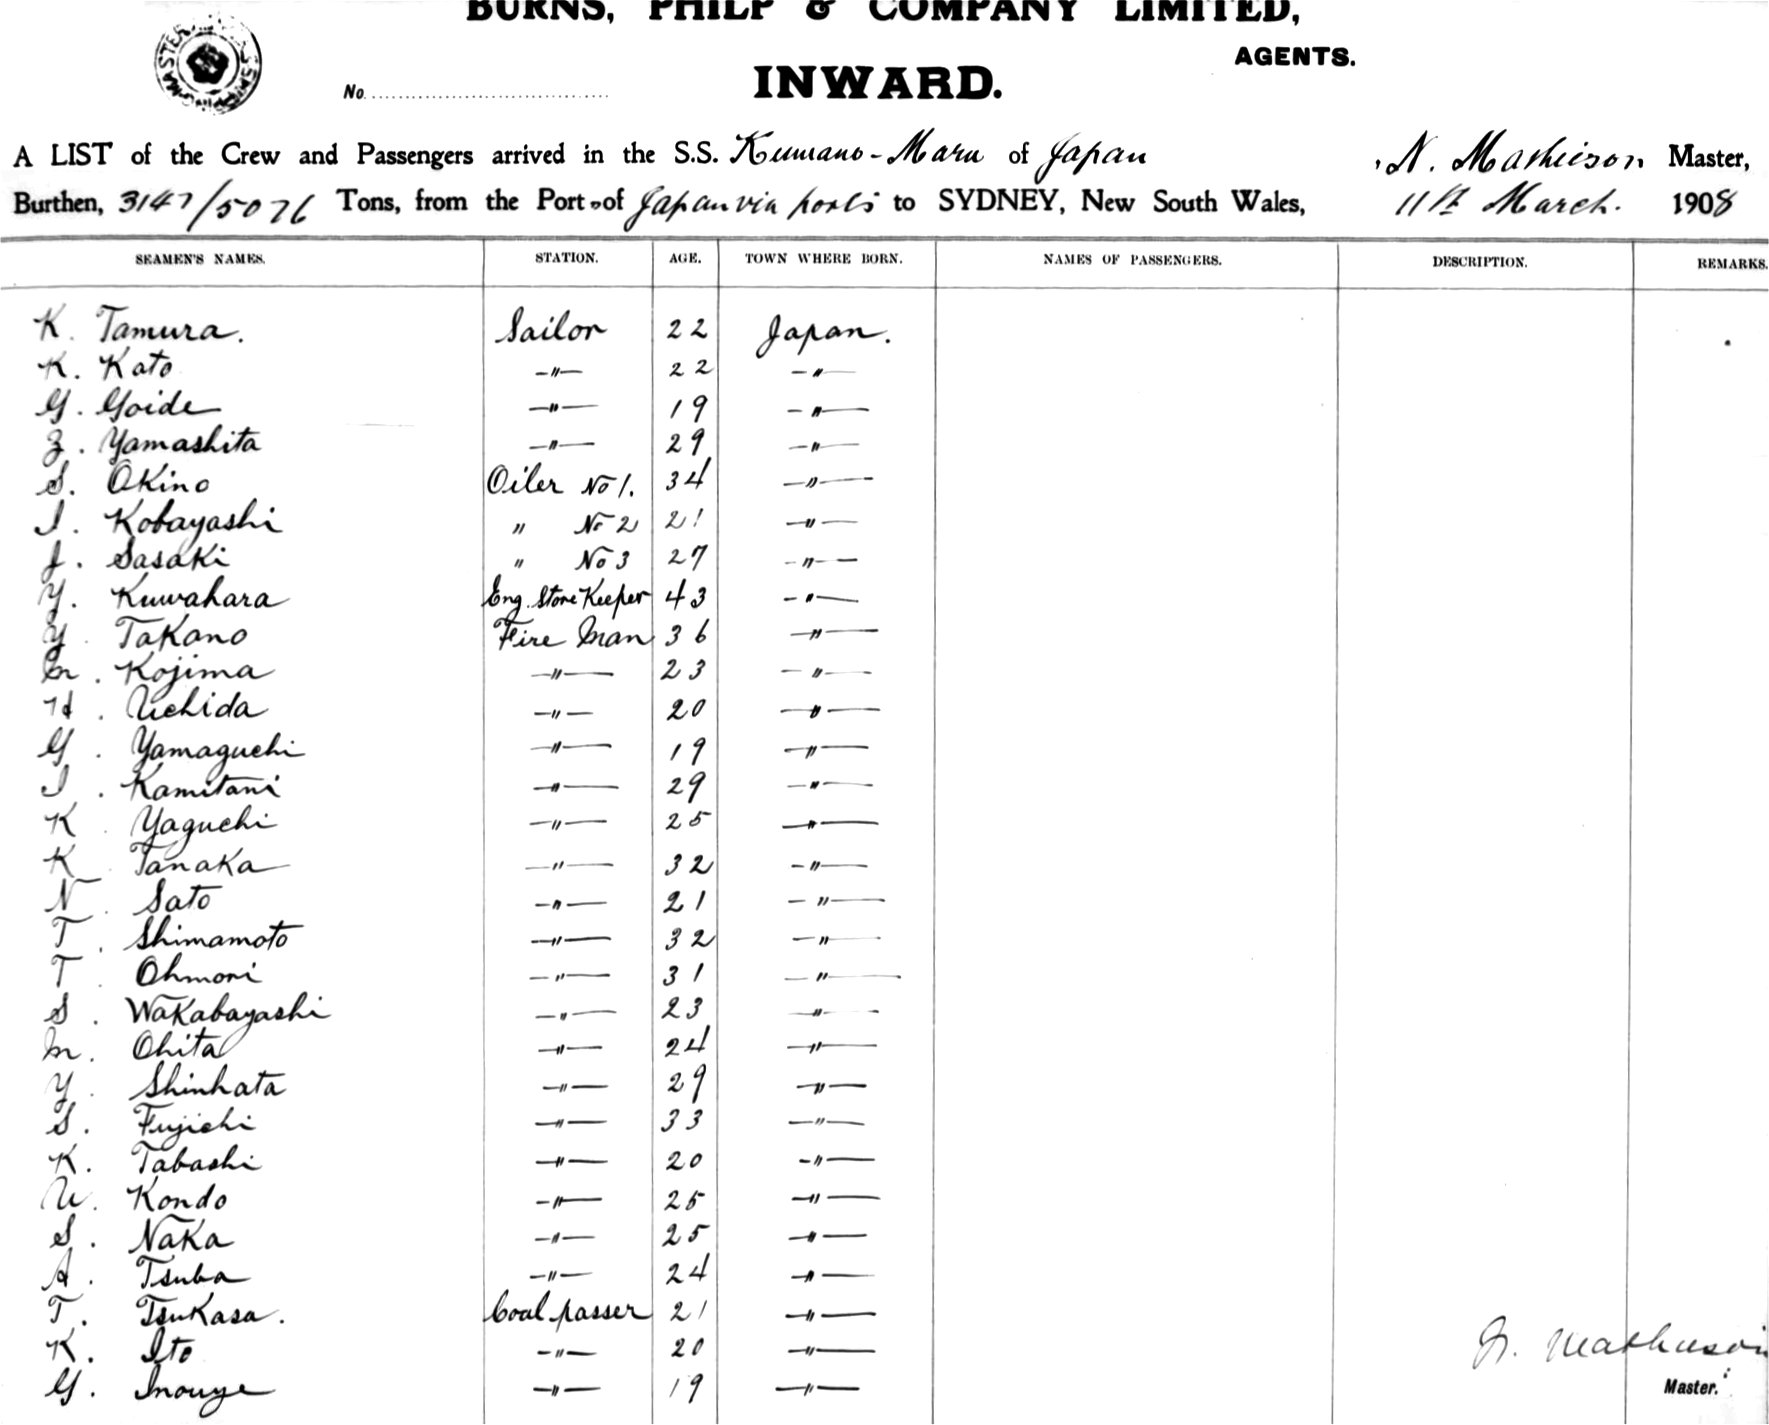 BURNS, PHILP & COMPANY LIMITED,
AGENTS.
INWARD.
No.
A LIST of the Crew and Passengers arrived in the S.S. Kumano-Maru of Japan N. Mathieson Master,
Burthen, 3147/5076 Tons, from the Port of Japan via ports to SYDNEY, New South Wales, 11th March. 1908
SEAMEN'S NAMES. STATION. AGE. TOWN WHERE BORN. NAMES OF PASSENGERS. DESCRIPTION. REMARKS.
K. Tamura. Sailor 22 Japan.
K. Kato -"- 22 -"-
G. Goide -"- 19 -"-
Z. Yamashita -"- 29 -"-
S. Okino Oiler No 1. 34 -"-
I. Kobayashi " No 2 21 -"-
J. Sasaki " No 3 27 -"-
Y. Kuwahara Eng. Store Keeper 43 -"-
Y. Takano Fire Man 36 -"-
M. Kojima -"- 23 -"-
H. Uchida -"- 20 -"-
G. Yamaguchi -"- 19 -"-
I. Kamitani -"- 29 -"-
K. Yaguchi -"- 25 -"-
K Tanaka -"- 32 -"-
N. Sato -"- 21 -"-
T. Shimamoto -"- 32 -"-
T. Ohmori -"- 31 -"-
S. Wakabayashi -"- 23 -"-
M. Ohita -"- 24 -"-
Y. Shinhata -"- 29 -"-
S. Fujichi -"- 33 -"-
K. Tabashi -"- 20 -"-
U. Kondo -"- 25 -"-
S. Naka -"- 25 -"-
A. Tsuba -"- 24 -"-
T. Tsukasa. Coal passer 21 -"-
K. Ito -"- 20 -"-
G. Inouye -"- 19 -"-
N. Mathieson
Master.